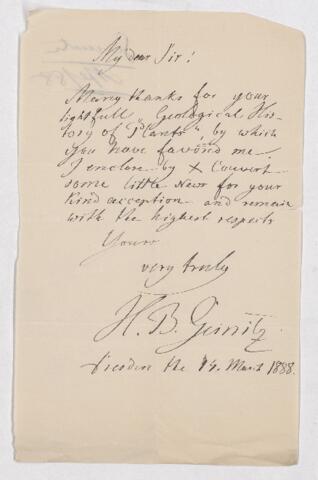 My dear Sir!
Many thanks for your
lightfull „Geological His-
tory of Plants“, by which
you have favored me.
I enclose by X Couvert
some little news for your
kind acception and remain
with the highest respects
Yours
very truly
H. B. Geinitz.
Dresden the 14. March 1888.